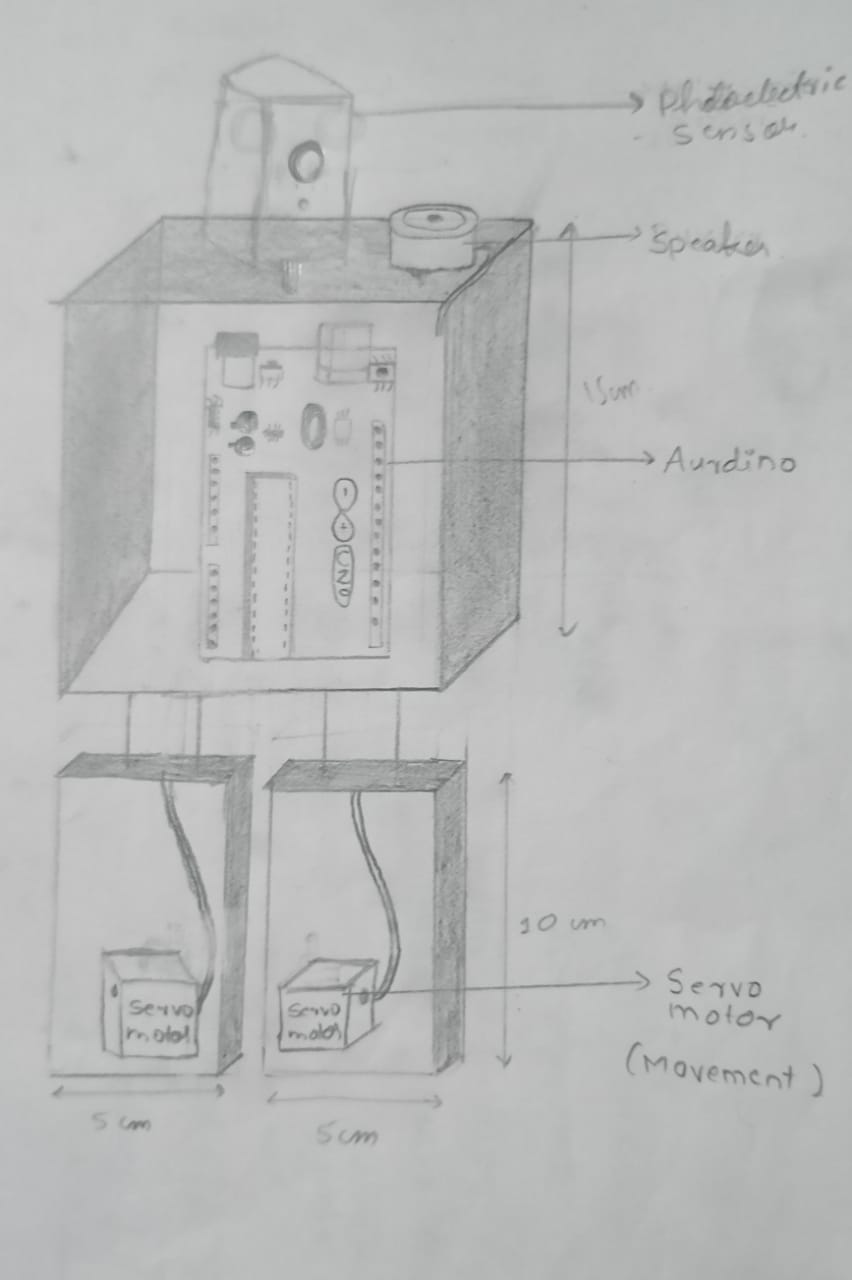 Photoelectric
sensor.
Speaker
15cm
Aurdino
10 cm
Servo
motor
Servo
motor
Servo
motor
(Movement)
5 cm
5cm